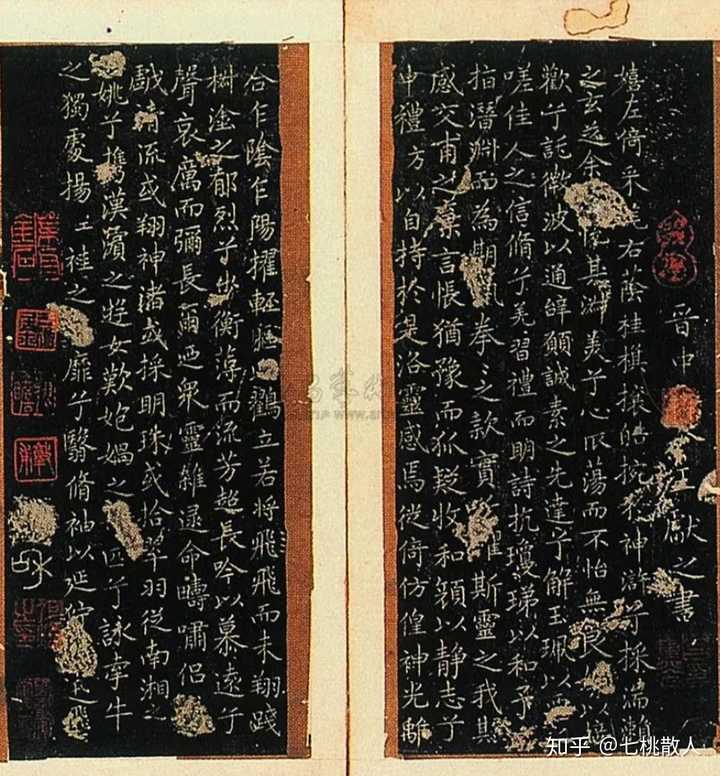 晉中令王獻之書
嬉左倚采旄右蔭桂旗攘皓捥於神滸兮採湍瀨
之玄芝余悅其淑美兮心振蕩而不怡無良以接
歡兮託微波以通辭願誠素之先達兮解玉珮以要
嗟佳人之信脩兮羌習禮而明詩抗瓊珶以和予
指潛淵而為期執拳〻之款實懼斯靈之我其
感交甫之棄言悵猶豫而狐疑收和顏以静志兮
申禮方以自持於是洛靈感焉徙倚仿偟神光離
合乍陰乍陽擢輕軀以鶴立若將飛飛而未翔踐
椒塗之郁烈兮步衡薄而流芳超長吟以慕遠兮
聲哀厲而彌長爾迺眾靈雜遝命疇嘯侶
戲清流或翔神渚或採明珠或拾翠羽從南湘之
二姚兮攜漢濱之遊女歎匏媧之無匹兮詠牽牛
之獨處揚袿之靡兮翳脩袖以延佇迅飛
知乎 @七桃散人